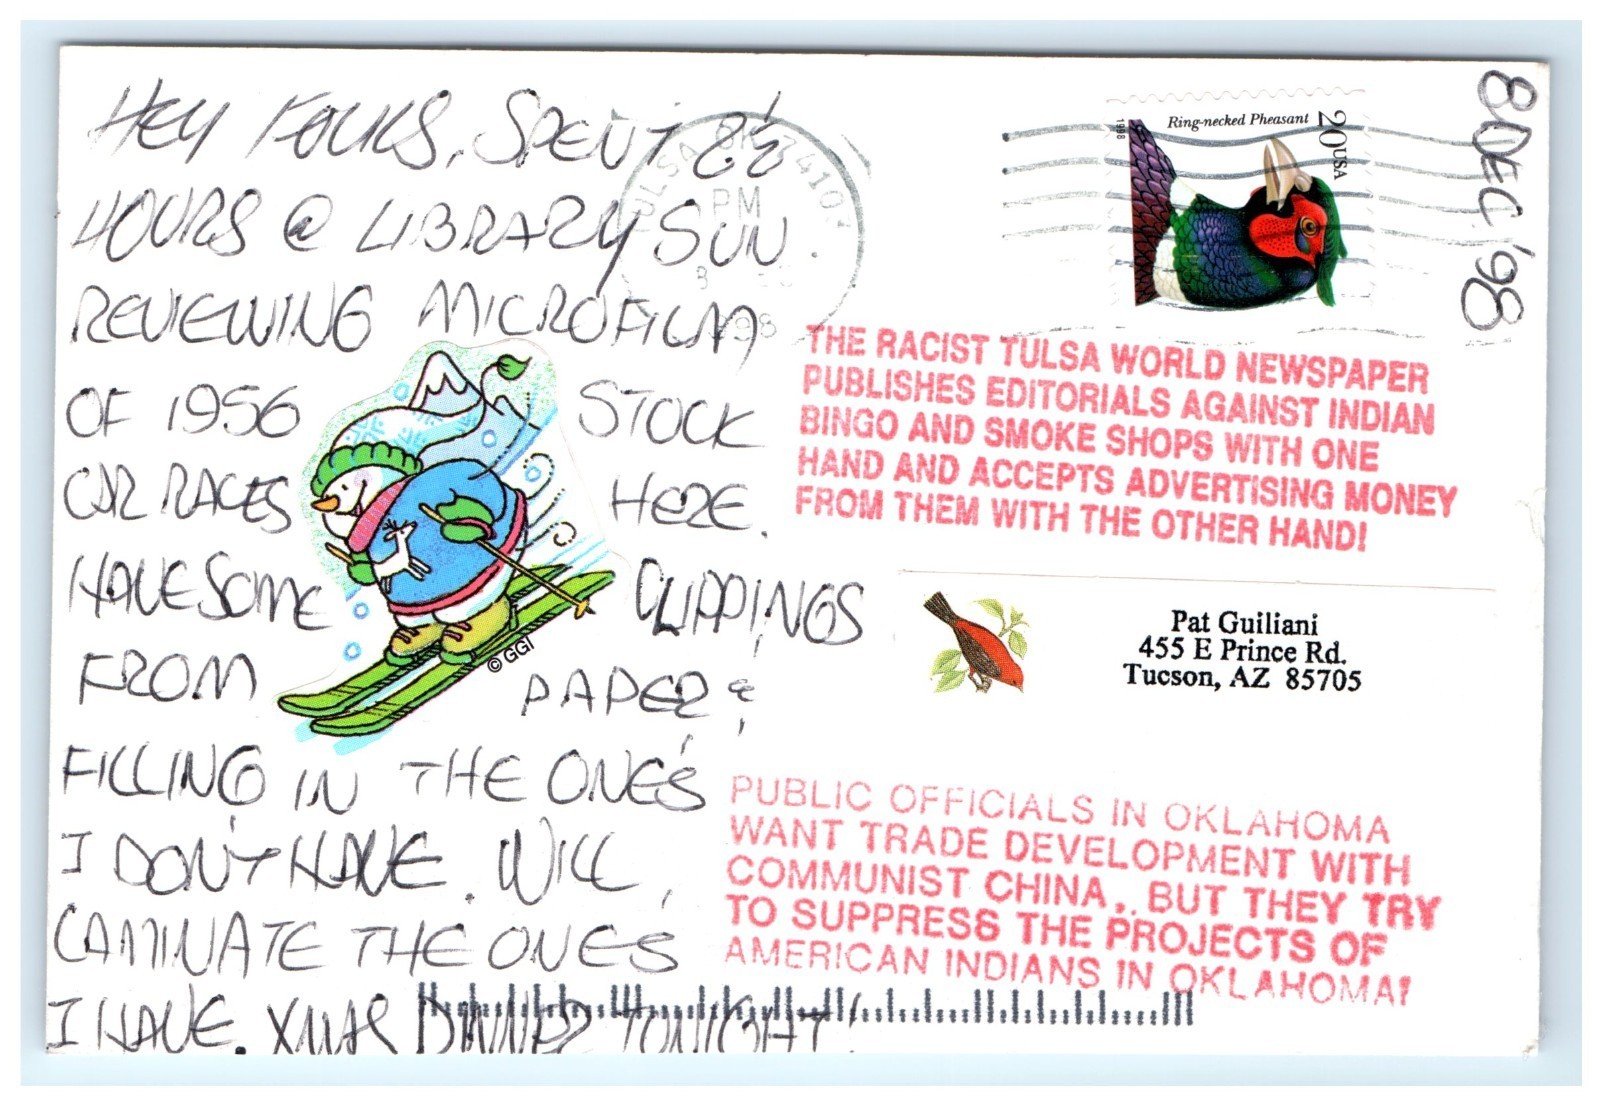 HEY FOLKS, SPENT 8½
HOURS @ LIBRARY SUN
REVIEWING MICROFILM
OF 1956 STOCK
CAR RACES HERE.
HAVE SOME CLIPPINGS
FROM PAPER &
FILLING IN THE ONE'S
I DON'T HAVE. WILL
LAMINATE THE ONE'S
I HAVE. XMAS DINNER TONIGHT!
© GGI
TULSA OK 74107
PM
8
1998
Ring-necked Pheasant
20USA
1998
8 DEC '98
THE RACIST TULSA WORLD NEWSPAPER
PUBLISHES EDITORIALS AGAINST INDIAN
BINGO AND SMOKE SHOPS WITH ONE
HAND AND ACCEPTS ADVERTISING MONEY
FROM THEM WITH THE OTHER HAND!
Pat Guiliani
455 E Prince Rd.
Tucson, AZ 85705
PUBLIC OFFICIALS IN OKLAHOMA
WANT TRADE DEVELOPMENT WITH
COMMUNIST CHINA,. BUT THEY TRY
TO SUPPRESS THE PROJECTS OF
AMERICAN INDIANS IN OKLAHOMA!